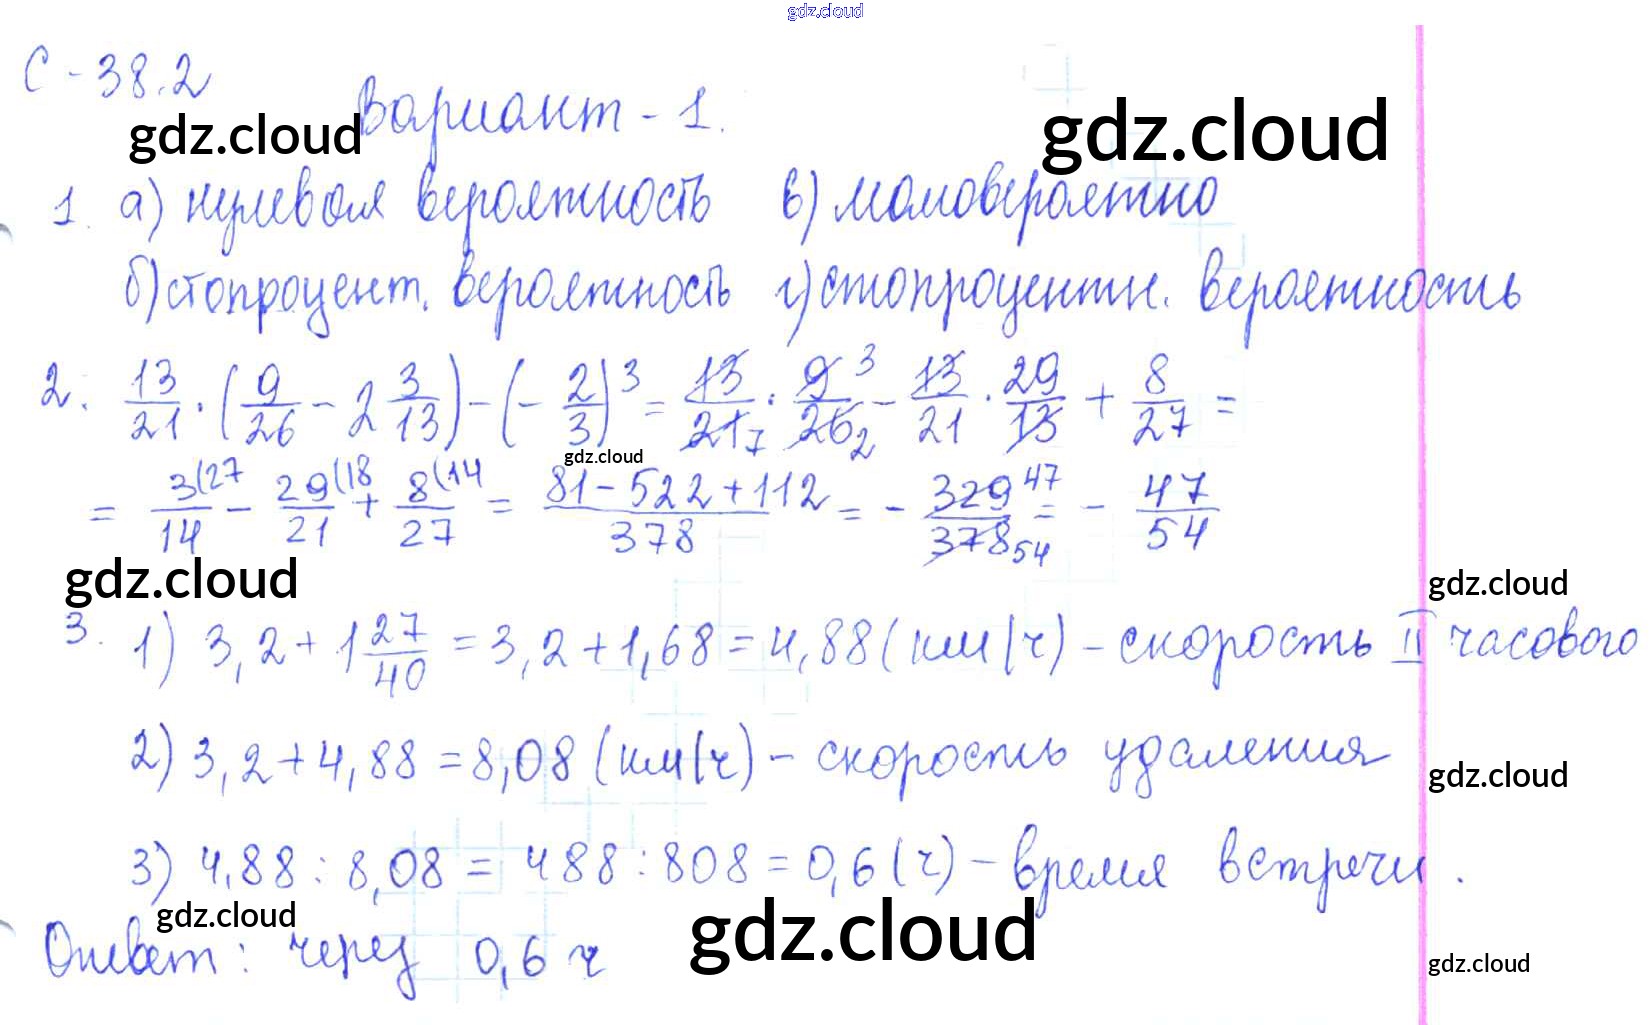 gdz.cloud
С - 38.2
Вариант - 1.
gdz.cloud gdz.cloud
1. а) нулевая вероятность в) маловероятно
б) стопроцент. вероятность г) стопроцентн. вероятность
2. 13/21 · (9/26 - 2 3/13) - (- 2/3)^3 = 13/21 7 · 9 3/26 2 - 13/21 · 29/13 + 8/27 =
gdz.cloud
= 3(27/14 - 29(18/21 + 8(14/27 = 81 - 522 + 112/378 = - 329 47/378 54 = - 47/54
gdz.cloud gdz.cloud
3. 1) 3,2 + 1 27/40 = 3,2 + 1,68 = 4,88 (км/ч) - скорость II часового
2) 3,2 + 4,88 = 8,08 (км/ч) - скорость удаления
gdz.cloud
3) 4,88 : 8,08 = 488 : 808 = 0,6 (ч) - время встречи.
gdz.cloud gdz.cloud
Ответ: через 0,6 ч
gdz.cloud